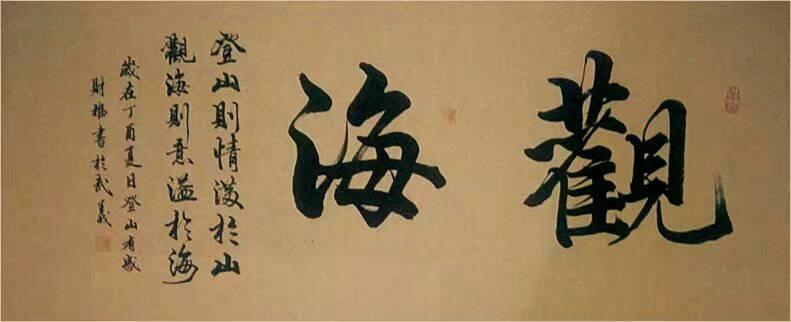 觀海
登山則情滿於山
觀海則意溢於海
歲在丁酉夏日登山有感
財書於武義